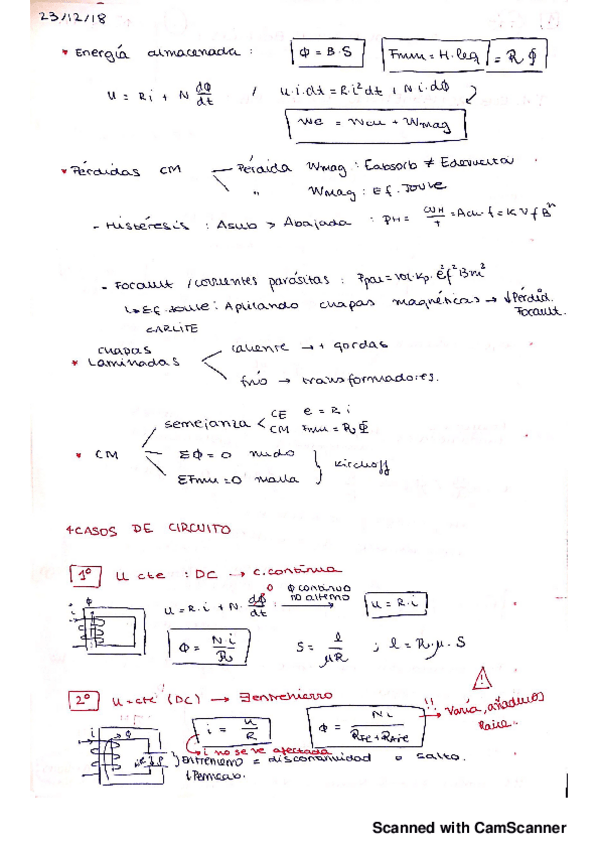 23/12/18
* Energía almacenada : Φ = B·S Fmm = H·leq = R Φ
u = Ri + N dΦ/dt / u·i·dt = R·i²dt + N i·dΦ
We = Wcu + Wmag
* Pérdidas CM Pérdida Wmag : Eabsorb ≠ Edevuelta
" Wmag : Ef. Joule
- Histéresis : Asub > Abajada : PH = WH/T = Acu·f = K V f Bⁿ
- Focault / corrientes parásitas : Ppar = vol·Kp·e²f²Bm²
↳ Ef. Joule : Aplicando chapas magnéticas → ↓Pérdid. Focault.
CARLITE
* chapas Laminadas caliente → + gordas
frío → transformadores.
* CM semejanza < CE e = R i
CM Fmm = R Φ
ΣΦ = 0 nudo
ΣFmm = 0 malla } Kirchoff
4 CASOS DE CIRCUITO
1º U cte : DC → c. continua
i Φ u = R·i + N· dΦ/dt 0 Φ continuo no alterno → u = R·i
Φ = Ni/R S = l/μR ; l = R·μ·S
2º U = cte (DC) → ∃entrehierro
i Φ i = u/R Φ = Ni/(RFe + RAire) !! varía, añadimos Raire.
i no se ve afectada
} Entrehierro = discontinuidad o salto.